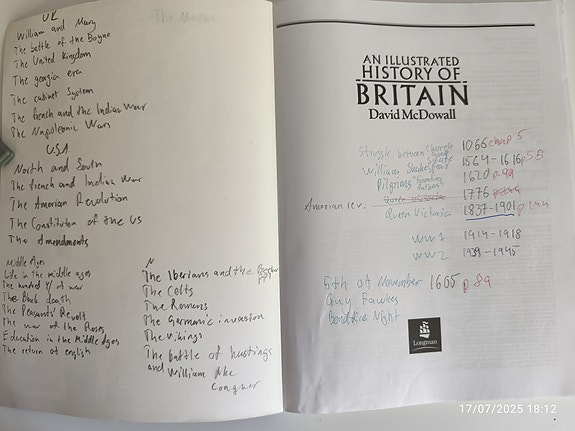 UK
William and Mary
The battle of the Boyne
The United Kingdom
The georgia era
The cabinet System
The french and the Indian War
The Napoleonic Wars
USA
North and South
The french and Indian War
The American Revolution
The Constitution of the US
The Amendments
Middle Ages
Life in the middle ages
The hundred Y of war
The Black death
The Peasants' Revolt
The war of the Roses
Education in the Middle Ages
The return of english
The Iberians and the
The Celts
The Romans
The Germanic invasion
The Vikings
The battle of hustings
and William the
Conquer
AN ILLUSTRATED
HISTORY OF
BRITAIN
David McDowall
Struggle between Church and State 1066 chap 5
William 1564-1616 p 55
Pilgrims "Founding fathers" 1620 p 99
American rev. Queen Victoria 1776
Queen Victoria 1837-1901 p 144
WW1 1914-1918
WW2 1939-1945
5th of November 1605 p 89
Guy Fawkes
Bonfire Night
Longman
17/07/2025 18:12